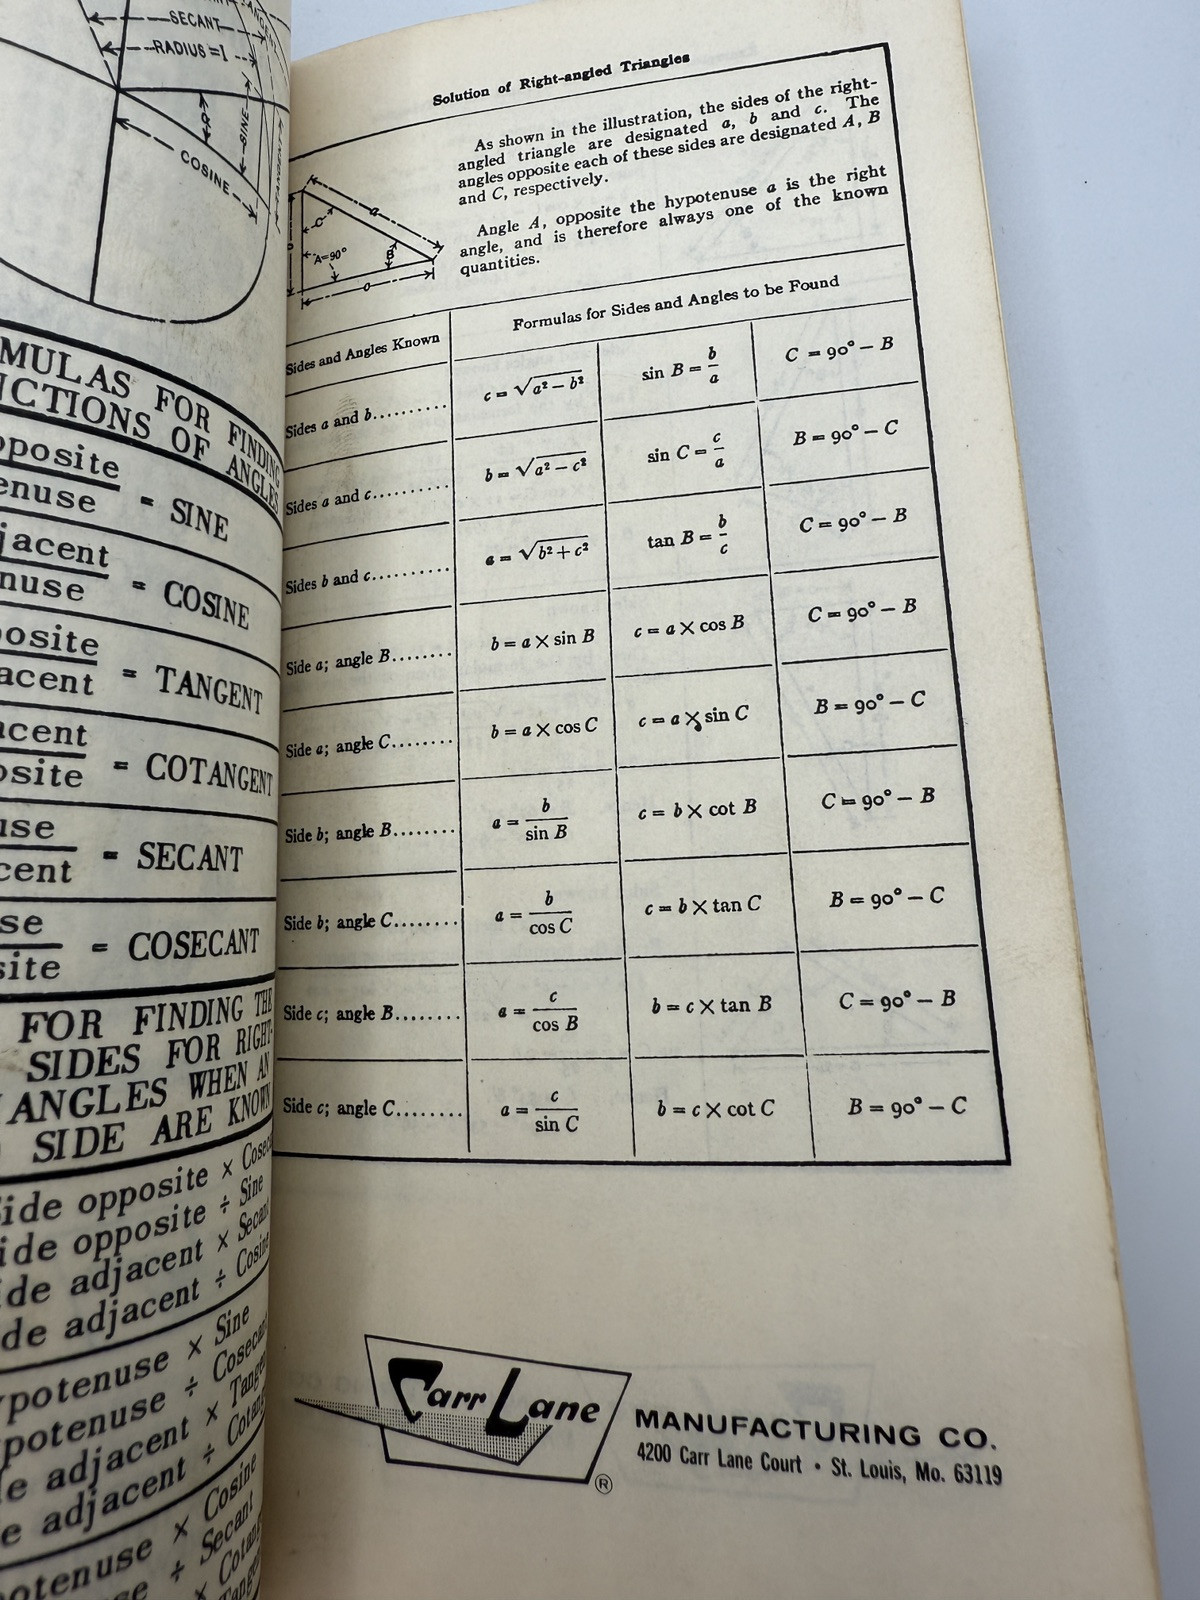 SECANT
RADIUS = 1
SINE
COSINE
MULAS FOR FINDING
NCTIONS OF ANGLES
pposite
enuse = SINE
jacent
nuse = COSINE
posite
acent = TANGENT
acent
osite = COTANGENT
use
cent = SECANT
se
site = COSECANT
FOR FINDING THE
SIDES FOR RIGHT-
ANGLES WHEN AN
SIDE ARE KNOWN
Side opposite × Cosec
ide opposite ÷ Sine
ide adjacent × Secant
de adjacent ÷ Cosine
ypotenuse × Sine
ypotenuse ÷ Cosecant
le adjacent × Tangen
e adjacent ÷ Cotang
potenuse × Cosine
use ÷ Secant
× Cotang
Tangen
Solution of Right-angled Triangles
As shown in the illustration, the sides of the right-
angled triangle are designated a, b and c. The
angles opposite each of these sides are designated A, B
and C, respectively.
Angle A, opposite the hypotenuse a is the right
angle, and is therefore always one of the known
quantities.
C
a
A=90°
B
Sides and Angles Known
Formulas for Sides and Angles to be Found
Sides a and b.......... c = √a² − b² sin B = b/a C = 90° − B
Sides a and c.......... b = √a² − c² sin C = c/a B = 90° − C
Sides b and c.......... a = √b² + c² tan B = b/c C = 90° − B
Side a; angle B........ b = a × sin B c = a × cos B C = 90° − B
Side a; angle C........ b = a × cos C c = a × sin C B = 90° − C
Side b; angle B........ a = b/sin B c = b × cot B C = 90° − B
Side b; angle C........ a = b/cos C c = b × tan C B = 90° − C
Side c; angle B........ a = c/cos B b = c × tan B C = 90° − B
Side c; angle C........ a = c/sin C b = c × cot C B = 90° − C
Carr Lane ®
MANUFACTURING CO.
4200 Carr Lane Court • St. Louis, Mo. 63119